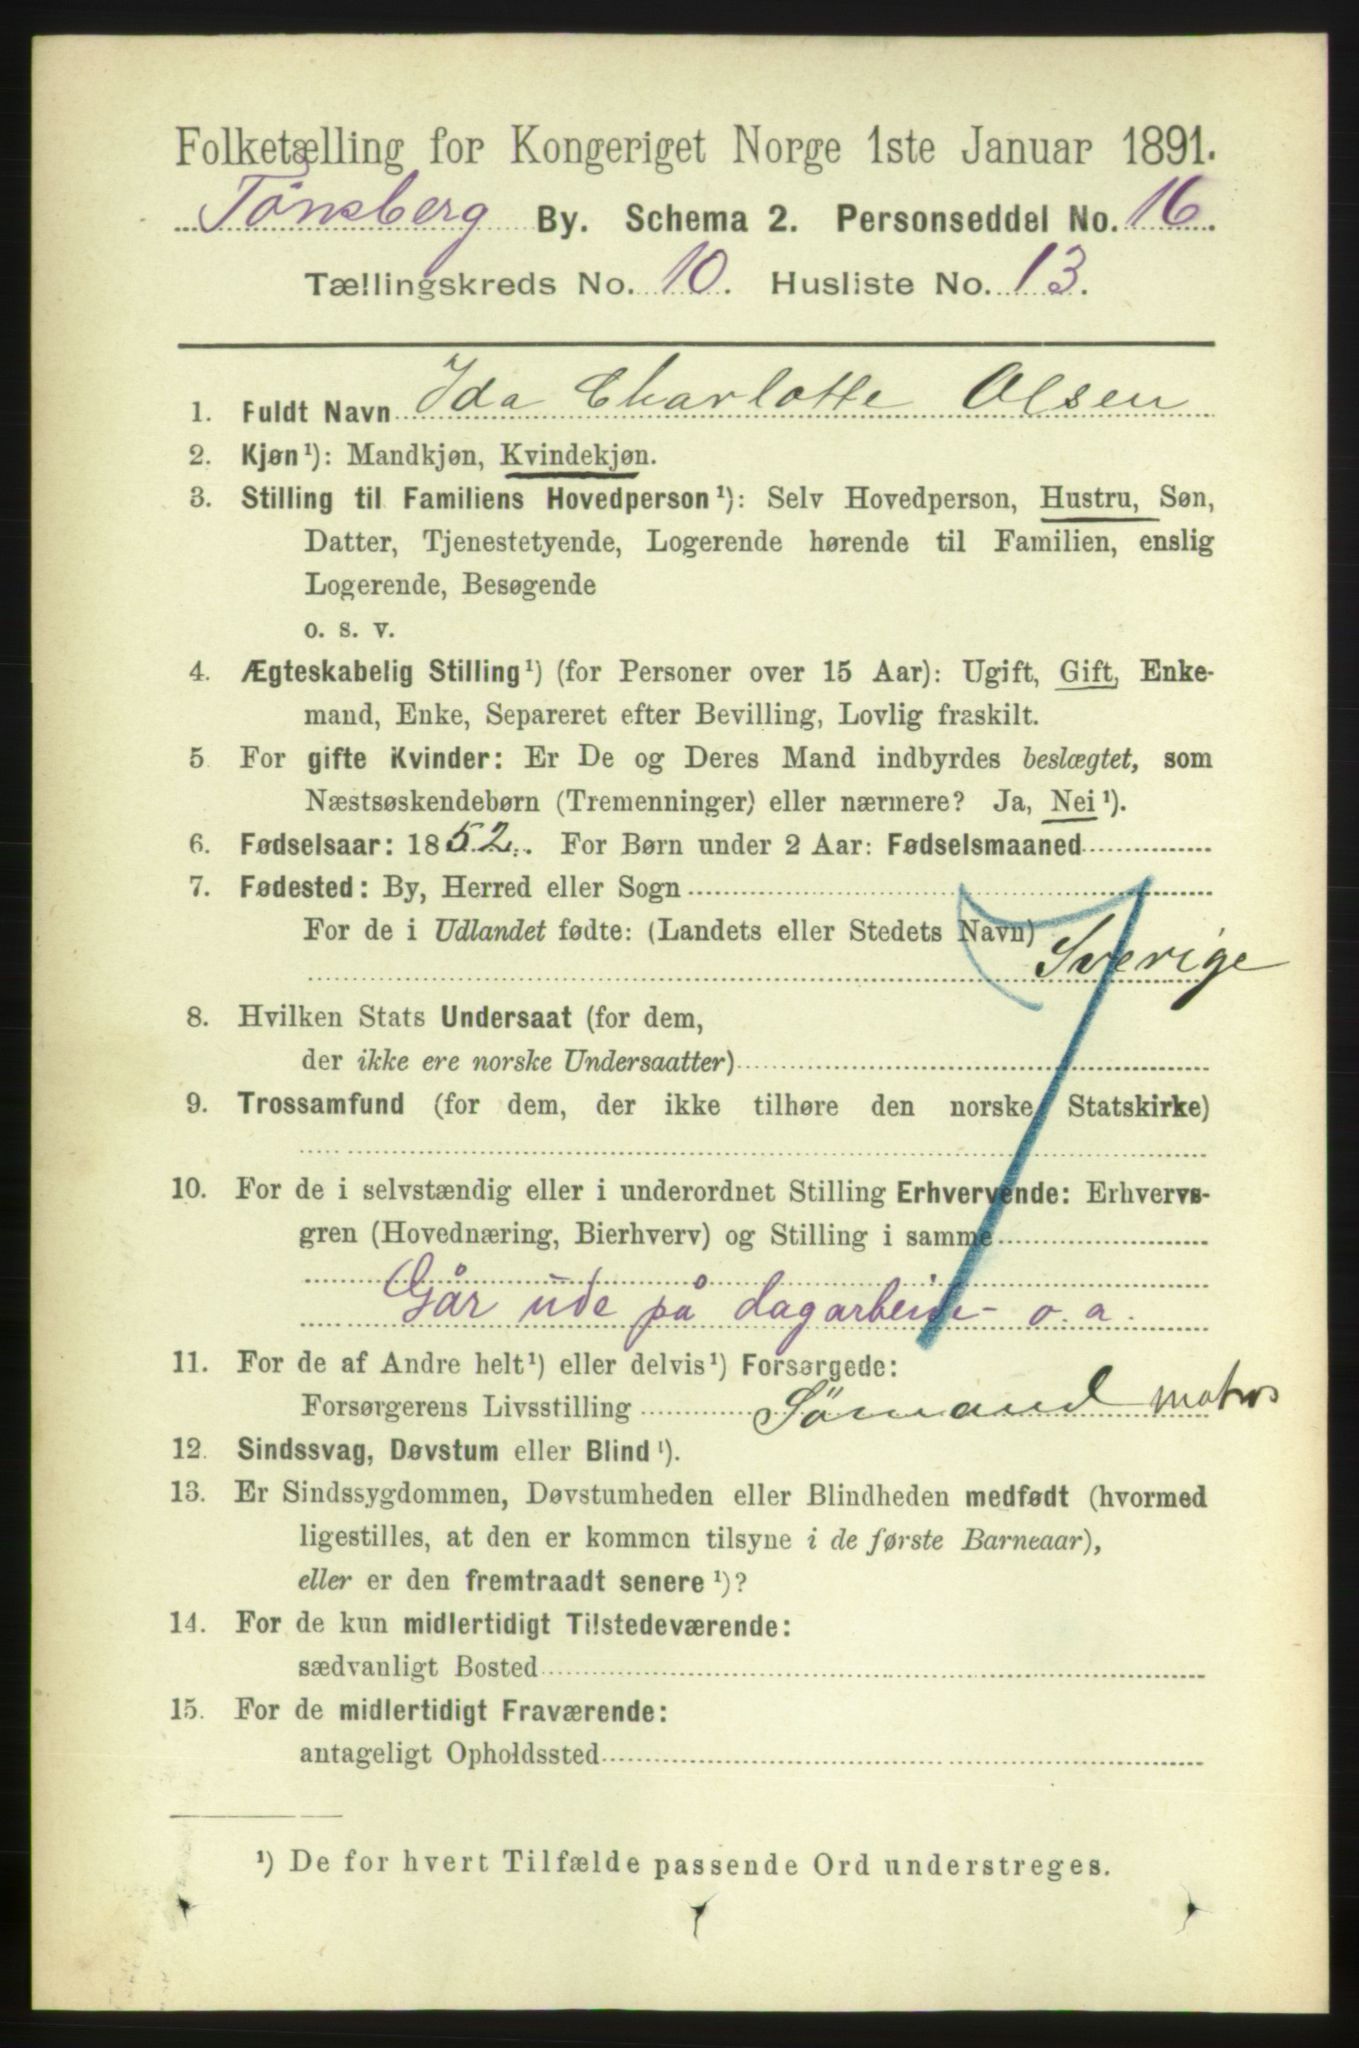 Folketælling for Kongeriget Norge 1ste Januar 1891.
Tönsberg By. Schema 2. Personseddel No. 16.
Tællingskreds No. 10. Husliste No. 13.
1. Fuldt Navn Ida Charlotte Olsen
2. Kjøn¹): Mandkjøn, Kvindekjøn.
3. Stilling til Familiens Hovedperson¹): Selv Hovedperson, Hustru, Søn,
Datter, Tjenestetyende, Logerende hørende til Familien, enslig
Logerende, Besøgende
o. s. v.
4. Ægteskabelig Stilling¹) (for Personer over 15 Aar): Ugift, Gift, Enke-
mand, Enke, Separeret efter Bevilling, Lovlig fraskilt.
5 For gifte Kvinder: Er De og Deres Mand indbyrdes beslægtet, som
Næstsøskendebørn (Tremenninger) eller nærmere? Ja, Nei¹).
6. Fødselsaar: 1852. For Børn under 2 Aar: Fødselsmaaned
7. Fødested: By, Herred eller Sogn
For de i Udlandet fødte: (Landets eller Stedets Navn)
Sverige
8. Hvilken Stats Undersaat (for dem,
der ikke ere norske Undersaatter)
9. Trossamfund (for dem, der ikke tilhøre den norske Statskirke)
10. For de i selvstændig eller i underordnet Stilling Erhvervende: Erhvervs-
gren (Hovednæring, Bierhverv) og Stilling i samme
Går ude på dagarbeide o. a.
11. For de af Andre helt¹) eller delvis¹) Forsørgede:
Forsørgerens Livsstilling Sömand matros
12. Sindssvag, Døvstum eller Blind¹).
13. Er Sindssygdommen, Døvstumheden eller Blindheden medfødt (hvormed
ligestilles, at den er kommen tilsyne i de første Barneaar),
eller er den fremtraadt senere¹)?
14. For de kun midlertidigt Tilstedeværende:
sædvanligt Bosted
15. For de midlertidigt Fraværende:
antageligt Opholdssted
¹) De for hvert Tilfælde passende Ord understreges.